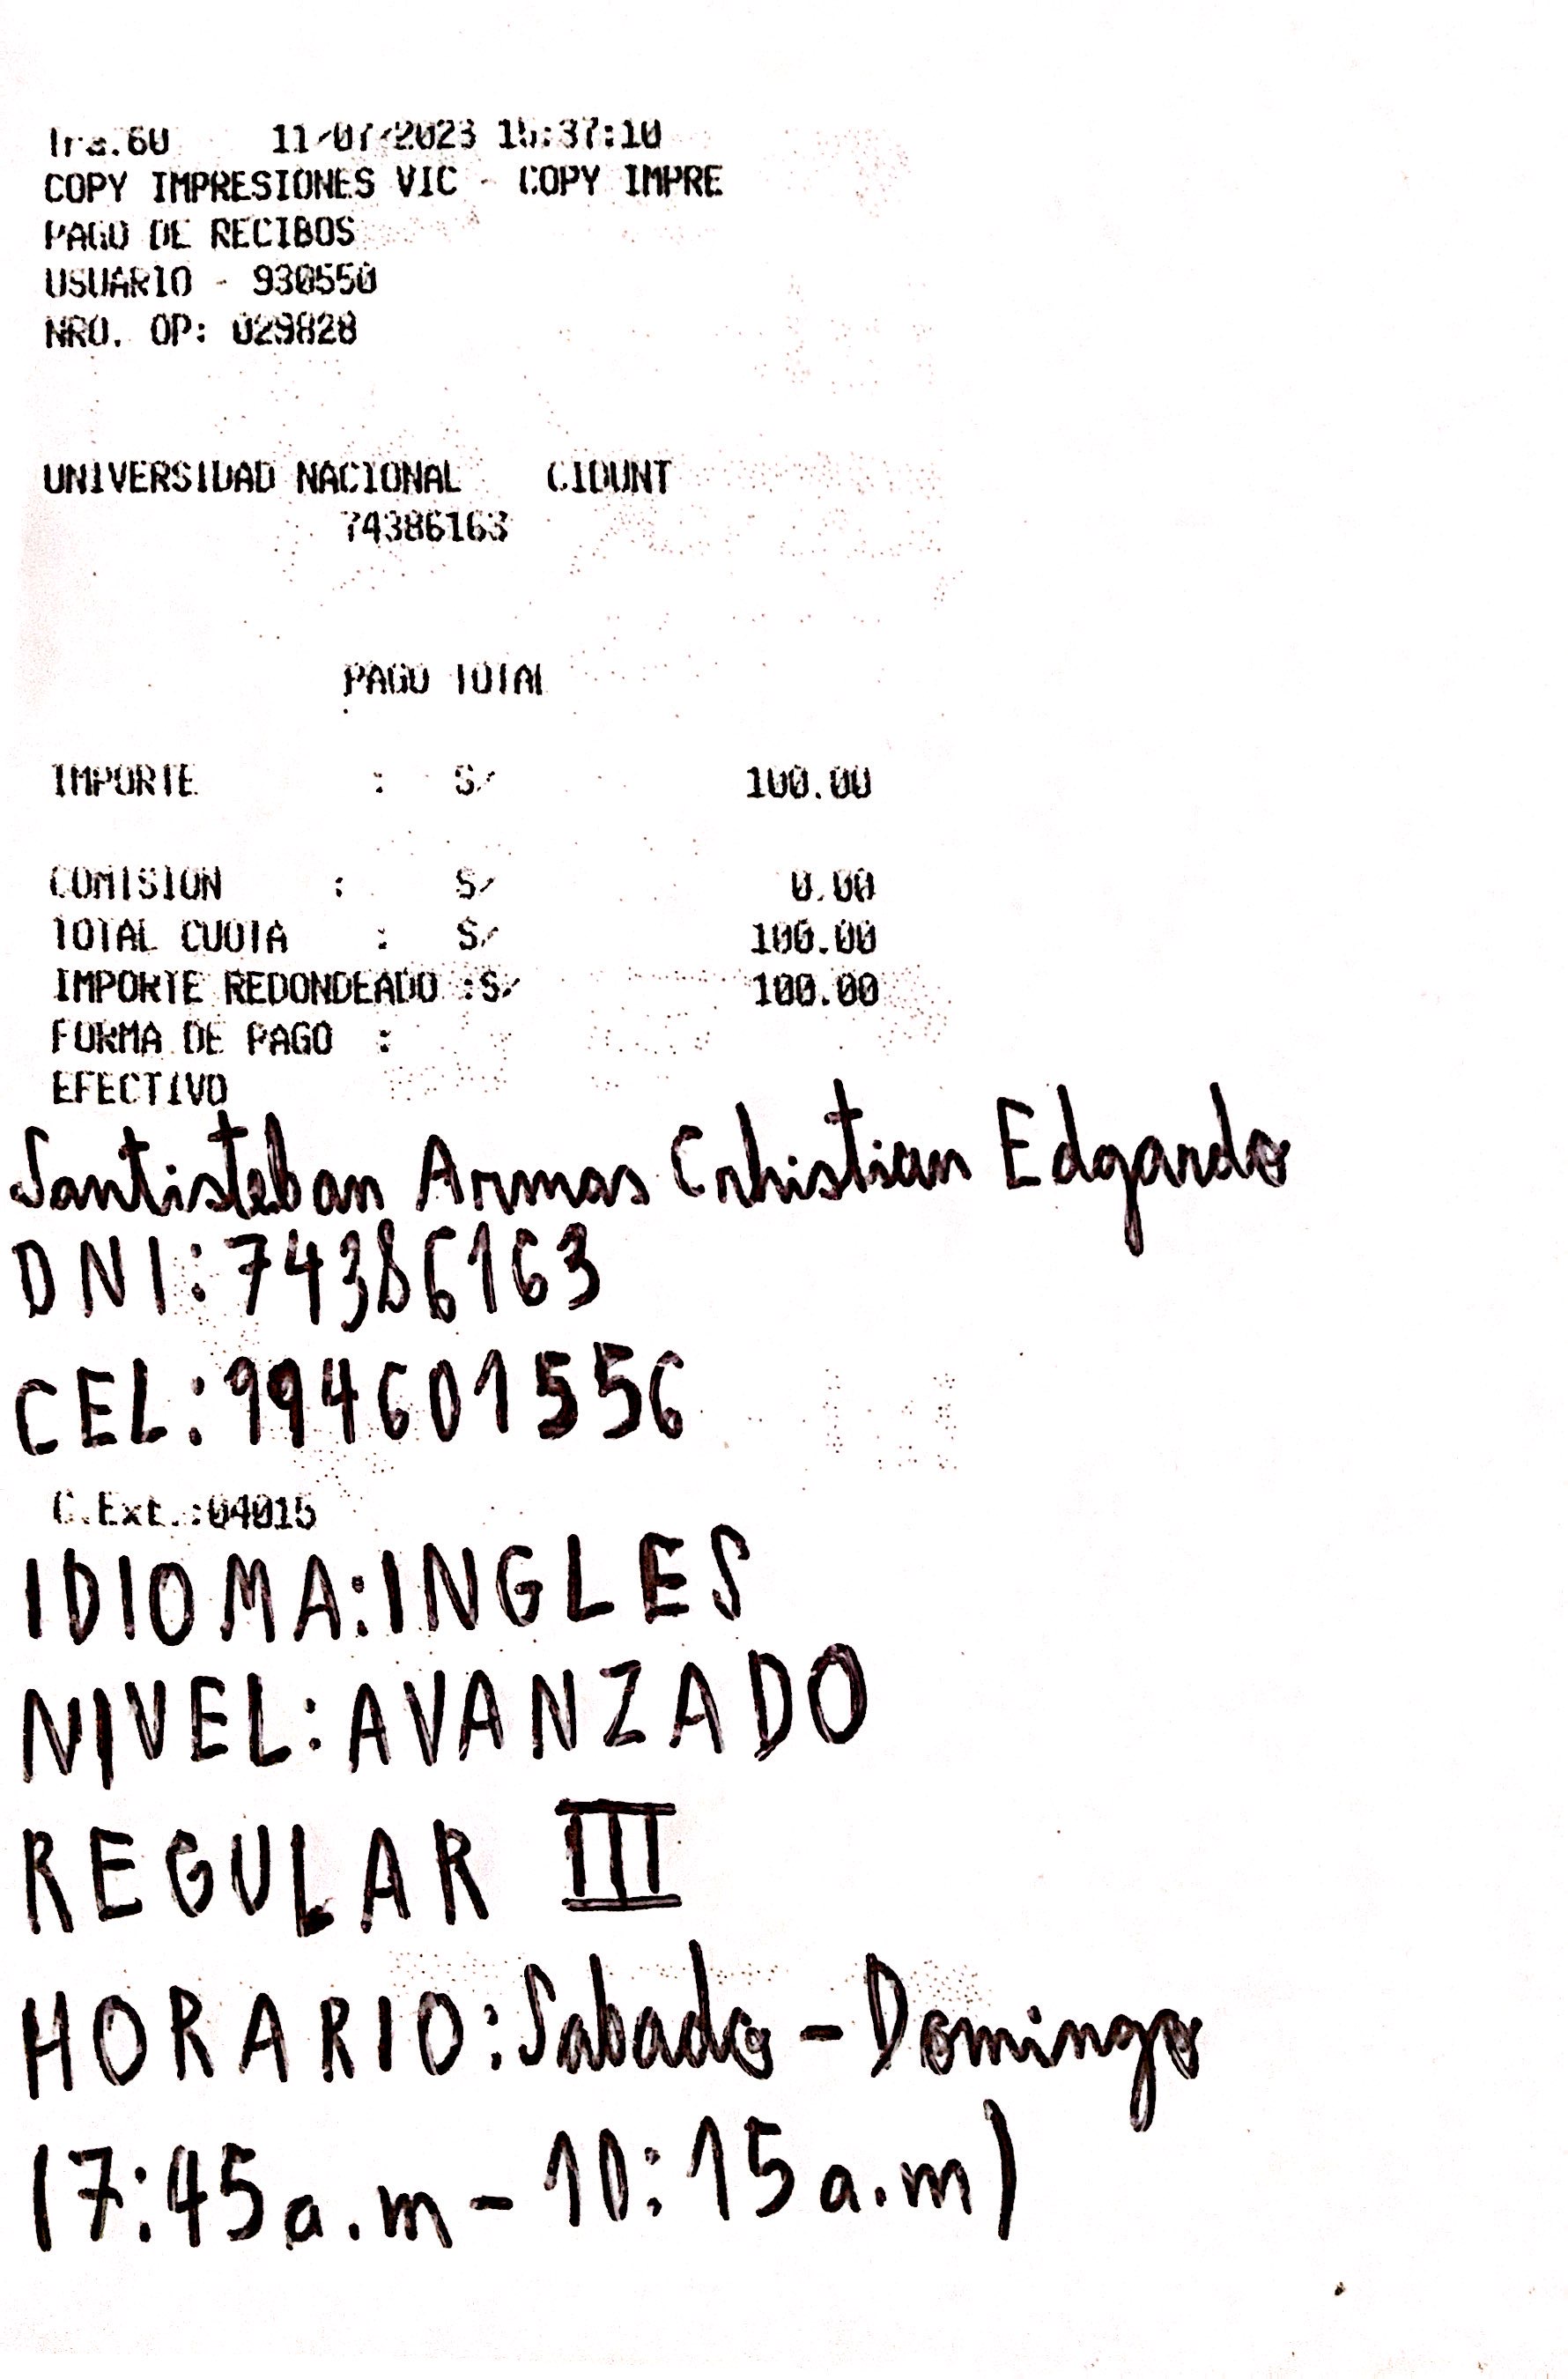 Trs.60 11/07/2023 15:37:10
COPY IMPRESIONES VIC - COPY IMPRE
PAGO DE RECIBOS
USUARIO - 930550
NRO. OP: 029828
UNIVERSIDAD NACIONAL CIDUNT
74386163
PAGO TOTAL
IMPORTE : S/ 100.00
COMISION : S/ 0.00
TOTAL CUOTA : S/ 100.00
IMPORTE REDONDEADO :S/ 100.00
FORMA DE PAGO :
EFECTIVO
Santisteban Armas Crhistian Edgardo
DNI:74386163
CEL:994601556
C.Ext.:04015
IDIOMA:INGLES
NIVEL:AVANZADO
REGULAR III
HORARIO:Sabado - Domingo
(7:45a.m - 10:15a.m)